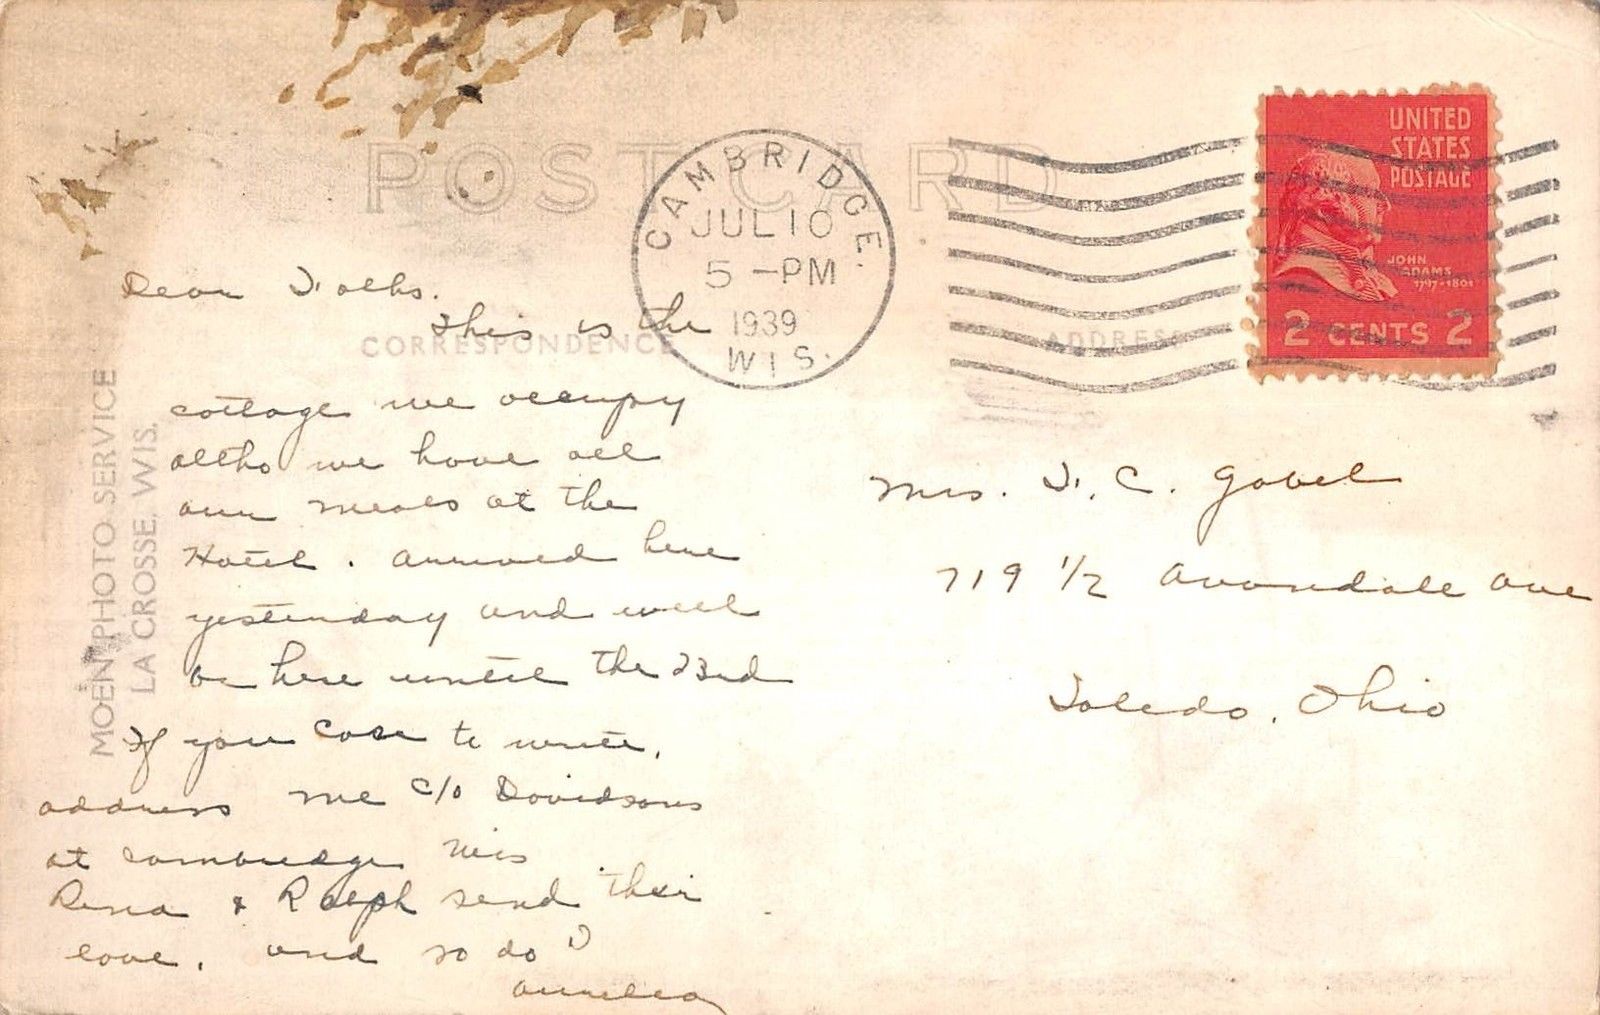 POST CARD
CAMBRIDGE.
JUL 10
5 -PM
1939
WIS.
UNITED
STATES
POSTAGE
JOHN
ADAMS
1797-1801
2 CENTS 2
CORRESPONDENCE
ADDRESS
MOEN PHOTO SERVICE
LA CROSSE, WIS.
Dear Folks.
This is the
cottage we occupy
altho we have all
our meals at the
Hotel. Arrived here
yesterday and will
be here until the 23rd
If you care to write,
address me c/o Davidsons
at Cambridge Wis
Rena & Ralph send their
love. and so do I
Aurelia
Mrs. F. C. Gobel
719 1/2 Avondale Ave
Toledo, Ohio